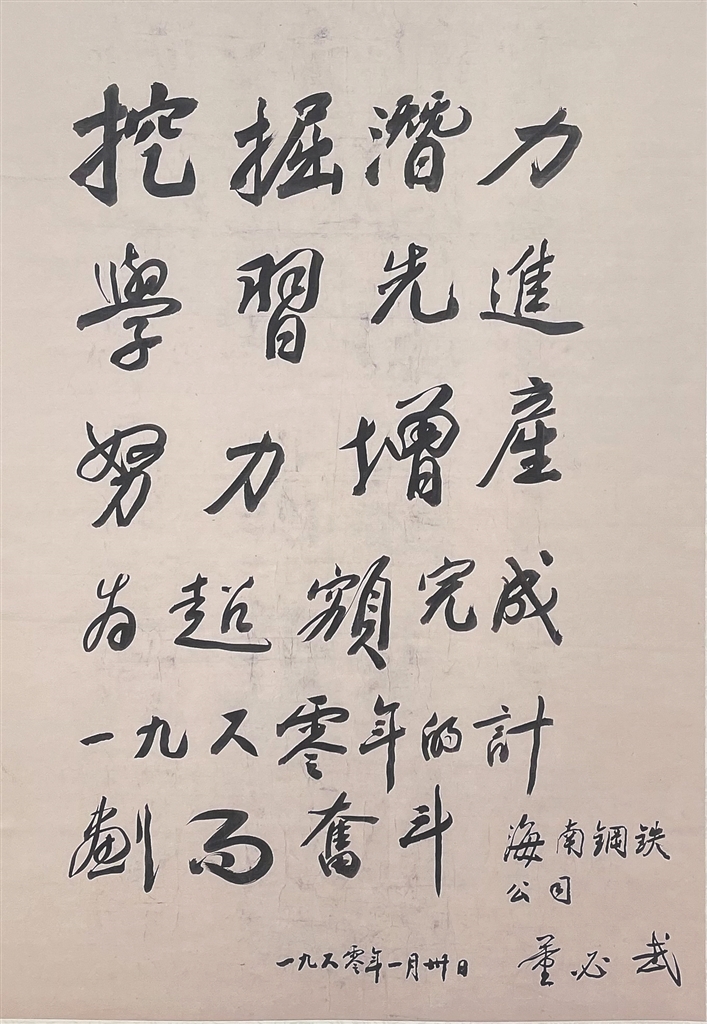 挖掘潛力
學習先進
努力增產
为超額完成
一九六零年的計
劃而奮斗
海南鋼鉄
公司
董必武
一九六零年一月卅日